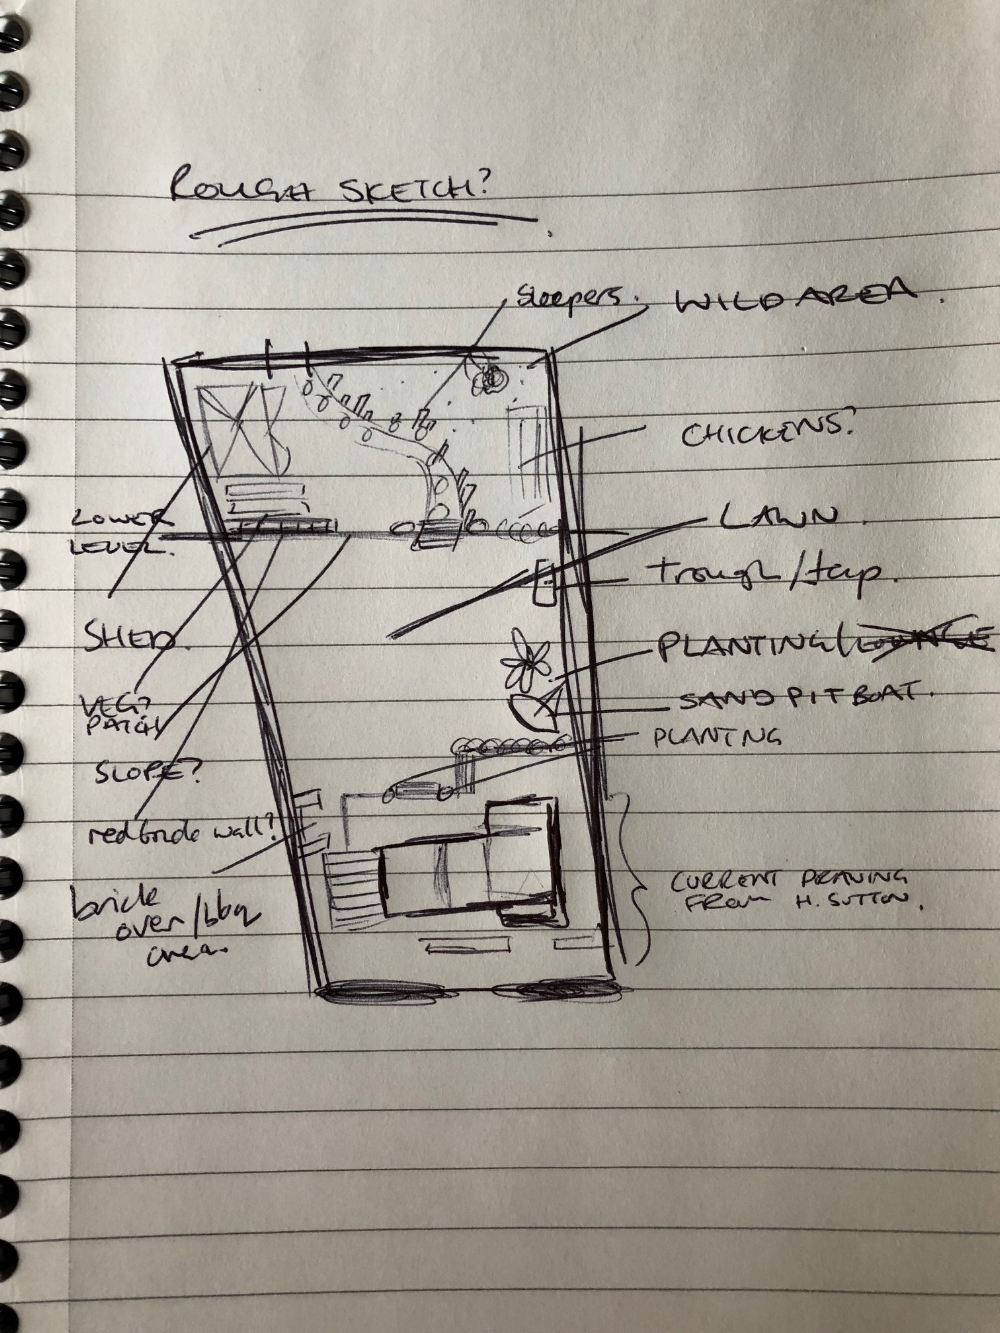 ROUGH SKETCH?
sleepers.
WILD AREA.
CHICKENS?
LOWER
LEVEL.
LAWN
trough/tap.
SHED.
PLANTING/LOUNGE
VEG?
PATCH
SAND PIT BOAT.
PLANTING
SLOPE?
wall?
brick
oven/bbq
area.
CURRENT DRAWING
FROM H. SUTTON.